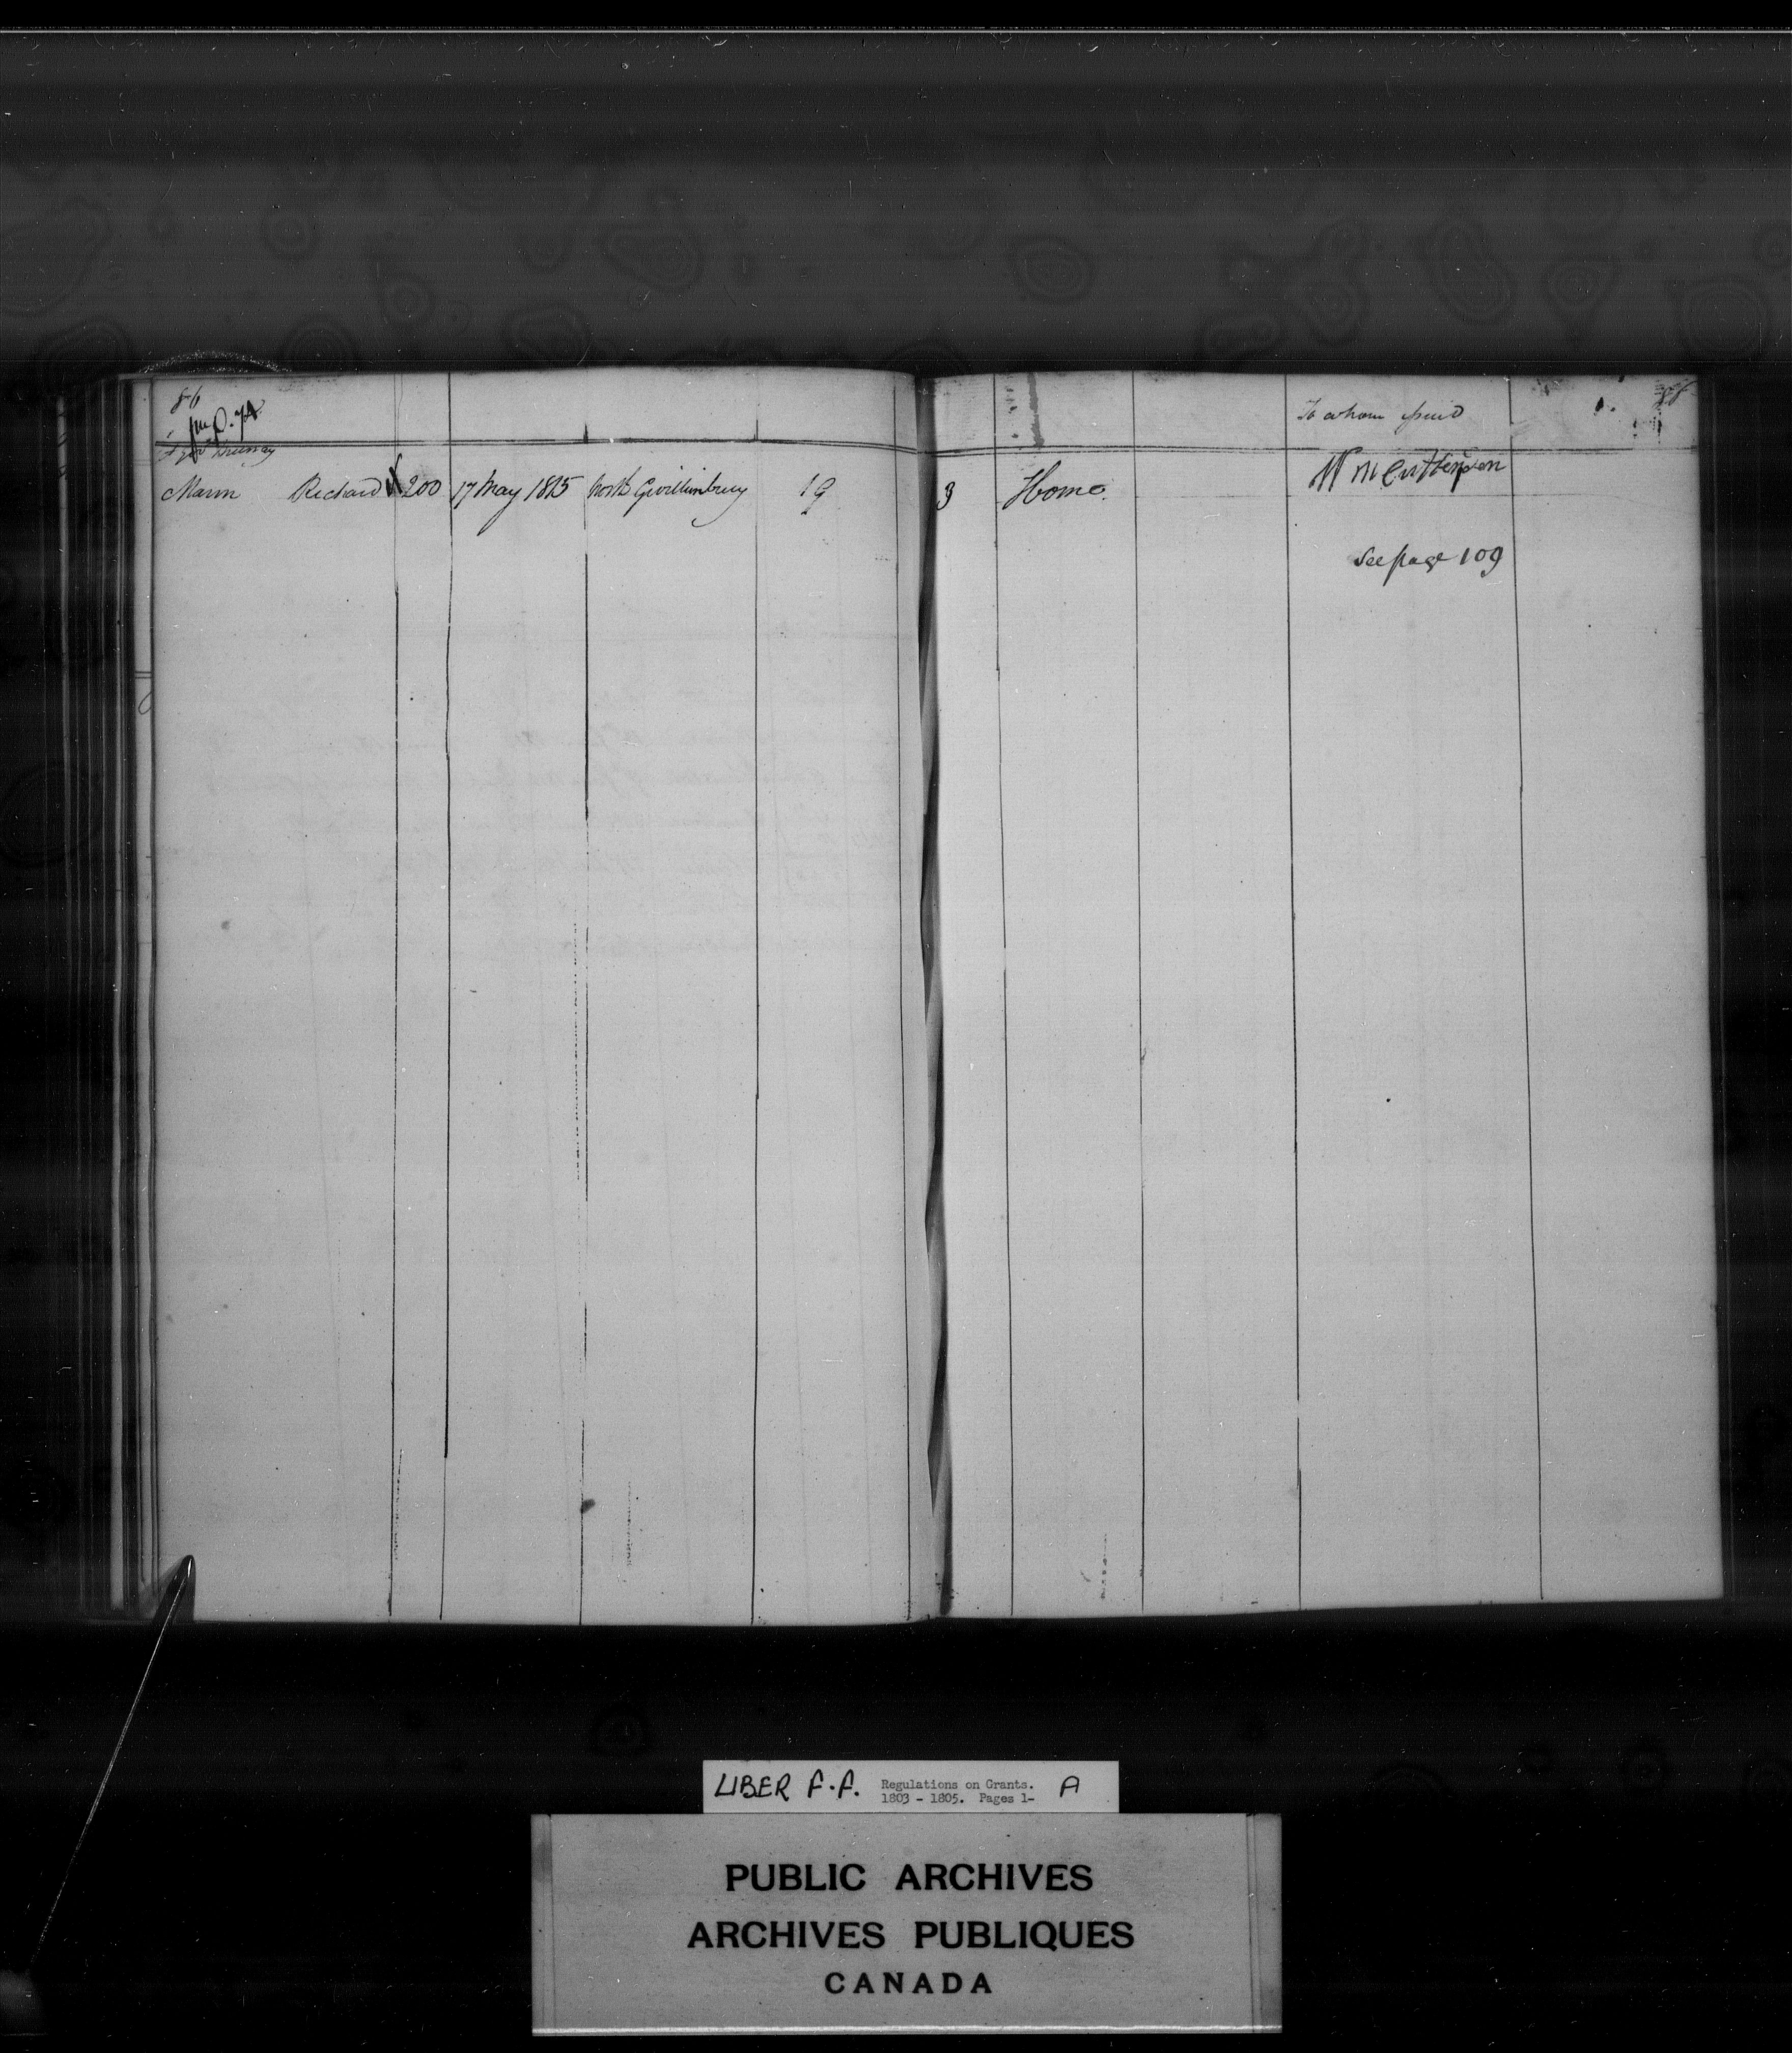 86
To whom issued
Mann Richard 200 17 May 1815 North Gwillimbury 19 3 Home.
See page 109
LIBER F.F. Regulations on Grants. A
1803 - 1805. Pages 1-
PUBLIC ARCHIVES
ARCHIVES PUBLIQUES
CANADA